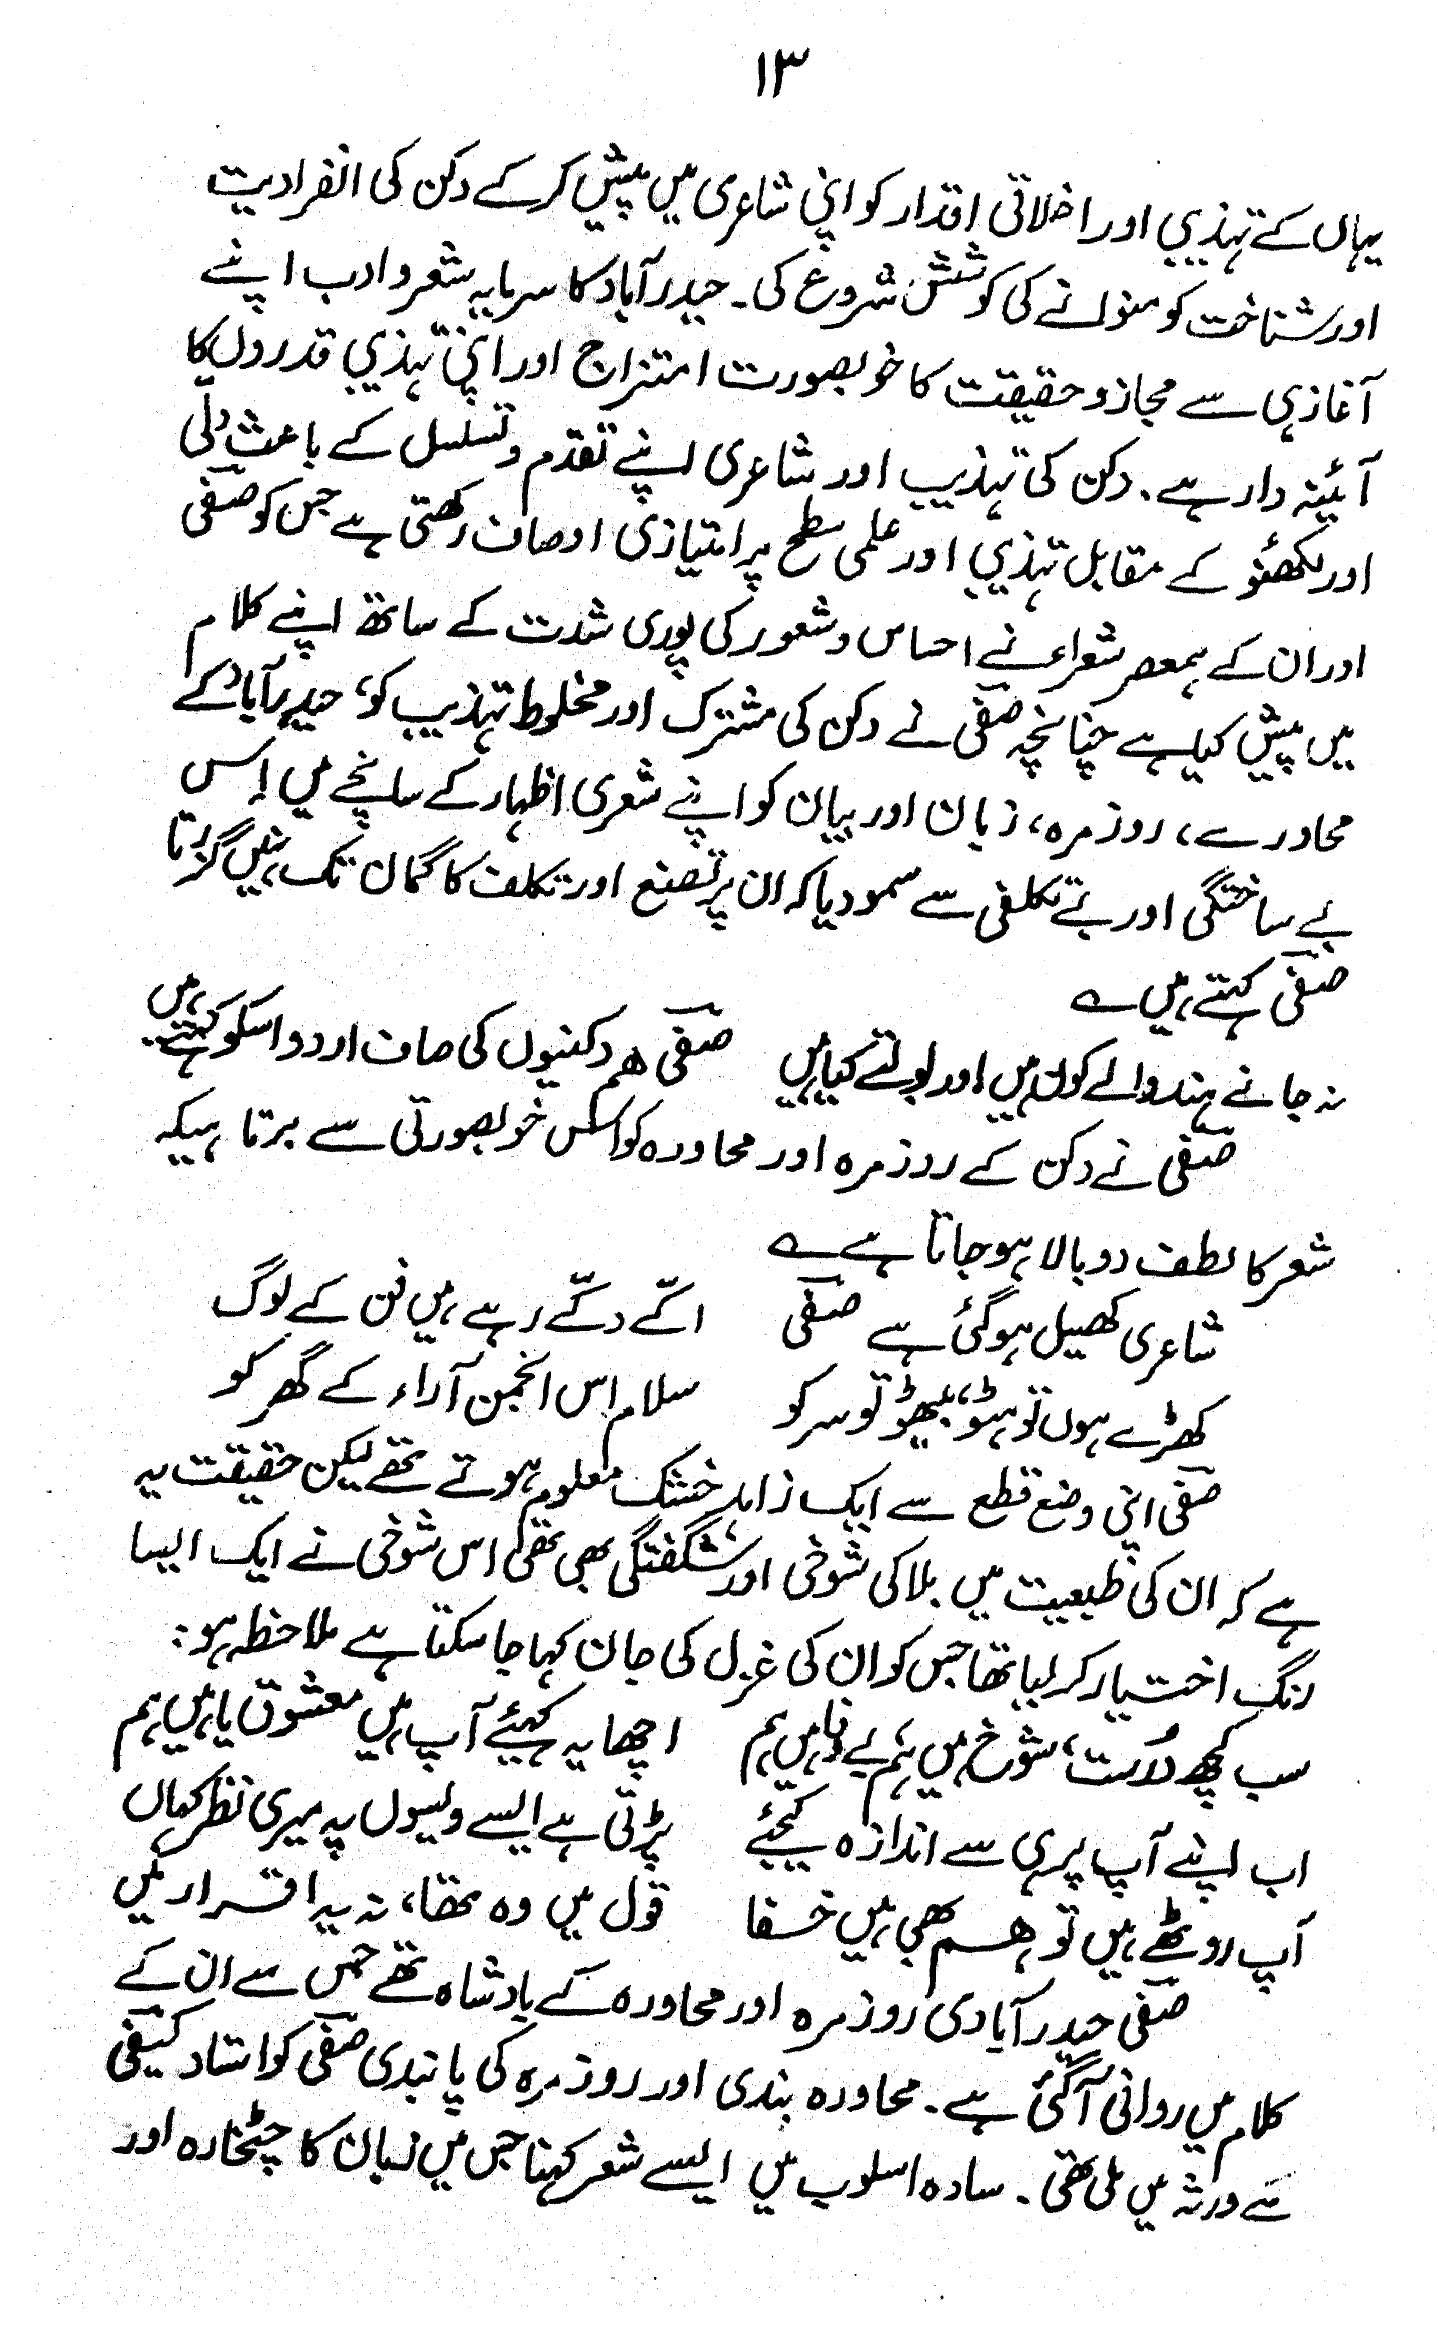 ۱۳
یہاں کے تہذیبی اور اخلاقی اقدار کو اپنی شاعری میں پیش کر کے دکن کی انفرادیت
اور شناخت کو منوانے کی کوشش شروع کی۔ حیدرآباد کا سرمایہ شعر و ادب اپنے
آغاز ہی سے مجاز و حقیقت کا خوبصورت امتزاج اور اپنی تہذیبی قدروں کا
آئینہ دار ہے۔ دکن کی تہذیب اور شاعری اپنے تقدم و تسلسل کے باعث دلّی
اور لکھنؤ کے مقابل تہذیبی اور علمی سطح پر امتیازی اوصاف رکھتی ہے جس کو صفی
اور ان کے ہمعصر شعراء نے احساس و شعور کی پوری شدت کے ساتھ اپنے کلام
میں پیش کیا ہے چنانچہ صفی نے دکن کی مشترک اور مخلوط تہذیب کو، حیدرآباد کے
محاورے، روزمرہ، زبان اور بیان کو اپنے شعری اظہار کے سانچے میں اِس
بے ساختگی اور بے تکلفی سے سمو دیا کہ ان پر تصنع اور تکلف کا گمان تک نہیں گزرتا
صفی کہتے ہیں ؎
نہ جانے ہند والے کون ہیں اور بولتے کیا ہیں صفی ہم دکنیوں کی صاف اردو اسکو کہتے ہیں
صفی نے دکن کے روزمرہ اور محاورہ کو اس خوبصورتی سے برتا ہیکہ
شعر کا لطف دوبالا ہو جاتا ہے ؎
شاعری کھیل ہو گئی ہے صفی اکّے دکّے رہے ہیں فن کے لوگ
کھڑے ہوں تو ہٹو، بیٹھو تو سرکو سلام اس انجمن آراء کے گھر کو
صفی اپنی وضع قطع سے ایک زاہد خشک معلوم ہوتے تھے لیکن حقیقت یہ
ہے کہ ان کی طبیعت میں بلا کی شوخی اور شگفتگی بھی تھی اس شوخی نے ایک ایسا
رنگ اختیار کر لیا تھا جس کو ان کی غزل کی جان کہا جا سکتا ہے ملاحظہ ہو:
سب کچھ درست، شوخ ہیں ہم بے وفا ہیں ہم اچھا یہ کہیئے آپ ہیں معشوق یا ہیں ہم
اب اپنے آپ پر ہی سے اندازہ کیجئے پڑتی ہے ایسے ویسوں پہ میری نظر کہاں
آپ روٹھے ہیں تو ہم بھی ہیں خفا قول میں وہ تھا، نہ یہ اقرار میں
صفی حیدرآبادی روزمرہ اور محاورہ کے بادشاہ تھے جس سے ان کے
کلام میں روانی آ گئی ہے۔ محاورہ بندی اور روزمرہ کی پابندی صفی کو استاد کیفی
سے ورثہ میں ملی تھی۔ سادہ اسلوب میں ایسے شعر کہنا جس میں زبان کا چٹخارہ اور